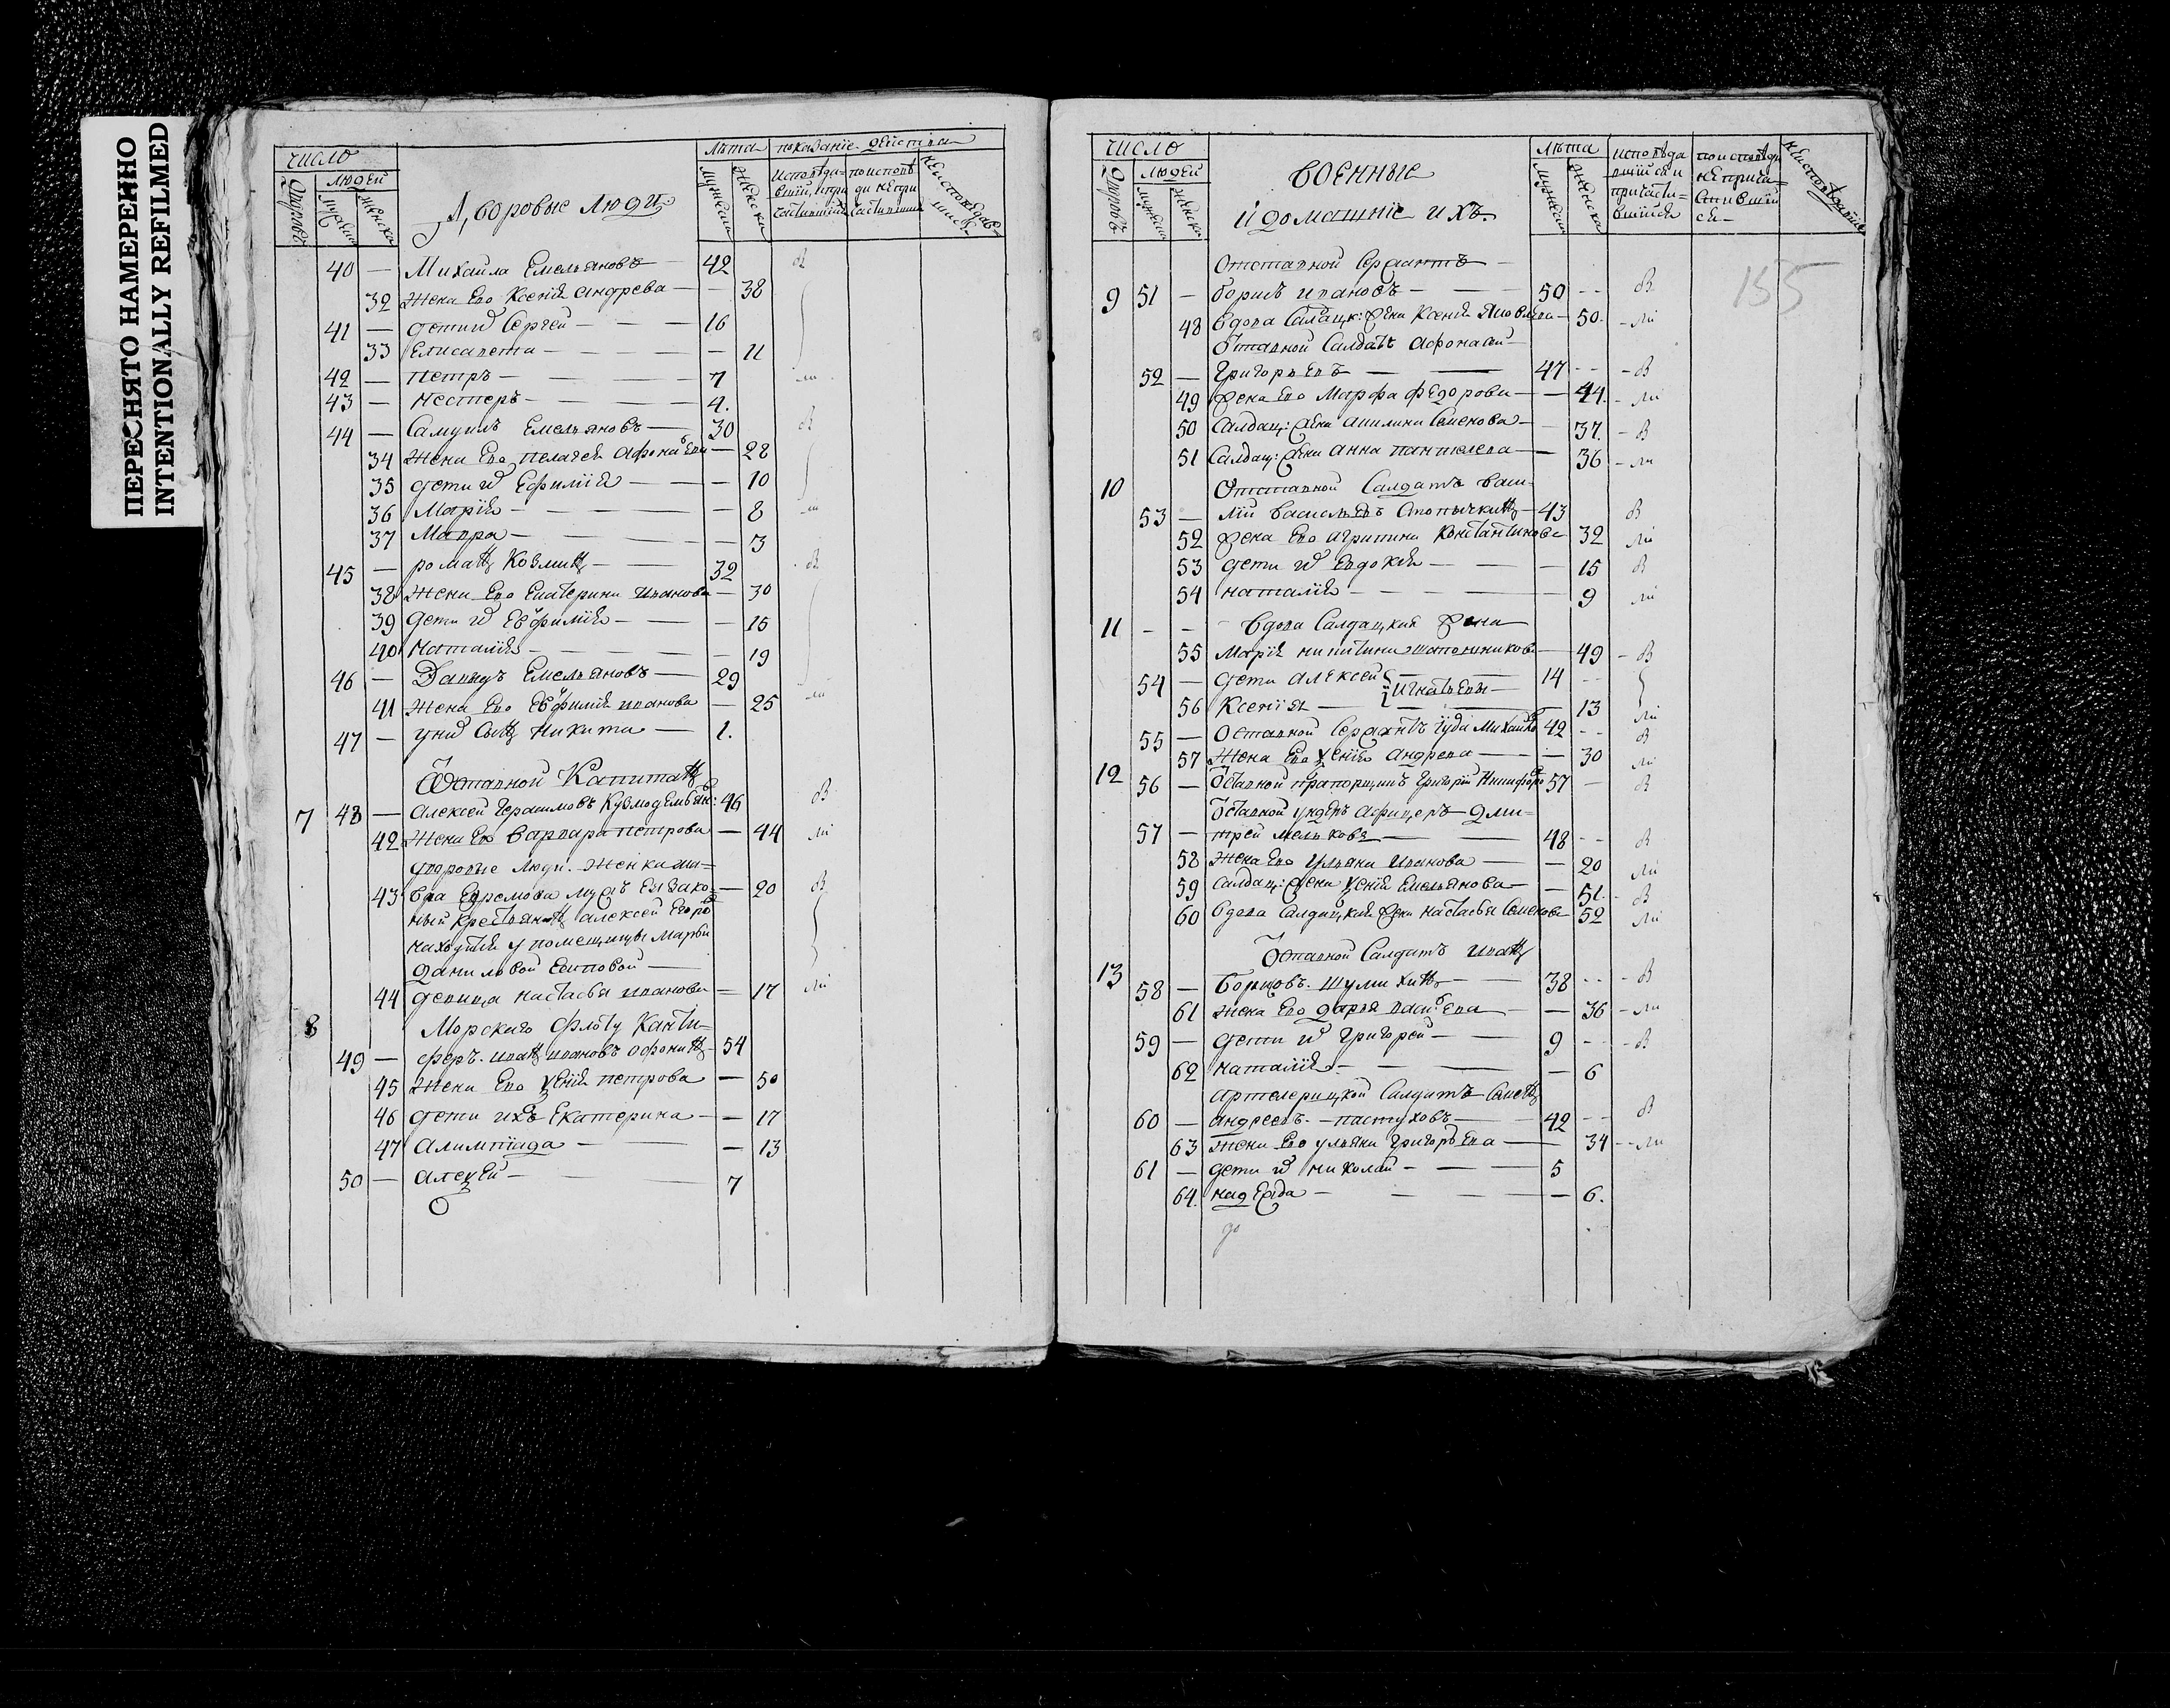 ПЕРЕСНЯТО НАМЕРЕННО
INTENTIONALLY REFILMED
число лѣта показанiе действа
людей
дворовъ мужска женска
Дворовые люди
мужска женска
40 — Михайла Емельяновъ — 42
32 Жена Ево Ксенiя Андрева — — 38
41 — дети их Сергей — — — 16
33 Елисавета — — — — — 11
42 — петръ — — — — 7
43 — нестеръ — — — — 4.
44 — Самуилъ Емельяновъ — 30
34 Жена Ево пелагея Афонасьева — 28
35 дети их Ефимiя — — — 10
36 Марiя — — — — — 8
37 Мавра — — — — 3
45 — романъ Козминъ — — 32
38 Жена Ево Екатерина иванова — 30
39 дети их Евфимiя — — — 15
40 Наталiя — — — — 19
46 — Давыдъ Емельяновъ — 29
41 жена Ево Евфимiя иванова — 25
47 — у них сынъ никита — 1.
Отставной Капитанъ
7 48 — Алексей Герасимовъ Кузмодемьян: 46
42 Жена Ево варвара петрова — 44
дворовые люди. женка
43 Ефремова мужъ Ея — 20
крестьянинъ алексей
находится у помещицы Марфы
даниловой Есиповой —
44 девица настасья иванова — 17
8 Морскаго флоту
49 — иванъ ивановъ 54
45 Жена Ево Ксенiя петрова — 50
46 дети ихъ Екатерина — — 17
47 Алимпiада — — — 13
50 — Алексей — — 7
число
людей
дворовъ мужска женска
военные
и домашнiе ихъ.
лѣта
мужска женска
исповѣда
вшiися и
причасти=
вшiися
по исповѣди
не прича=
стившiи
ся —
155
Отставной Сержантъ —
9 51 — борисъ ивановъ — — — 50 - -
48 вдова Салдацк: жена Ксенiя Яковлева — 50.
Отставной Салдатъ Афонасей —
52 — Григорьевъ — — 47 - -
49 жена Ево Марфа федорова — — 44.
50 Салдац: жена акилина Семенова — 37.
51 Салдац: жена анна пантелева — — 36
10 Отставной Салдатъ васи=
53 — лiй васильевъ — 43
52 жена Ево агрипина Константинова 32
53 дети их Евдокия — — — 15
54 наталiя — — — — 9
11 - - вдова Салдацкая жена
55 Марiя никитина шапошникова — 49
54 — дети алексей — 14 - -
игнатьевы —
56 Ксенiя — — 13
55 — Отставной Сержантъ 42 - -
57 Жена Ево Ксенiя Андрева — — 30
12 56 — Отставной прапорщикъ Григорiй Никифоро 57 —
Отставной ундеръ афицеръ — дми=
57 — трей мельковъ — — 48 - -
58 жена Ево Ульяна иванова — — 20
59 салдац: жена Ксенiя Емельянова — — 51.
60 вдова Салдацкая жена настасья Семенова — 52
Отставной Салдатъ иванъ
13 58 — борисовъ. шумихинъ — — 38 - -
61 жена Ево дарья васильева — — 36
59 — дети их Григорей — — 9 - -
62 наталiя — — — 6
артелерицкой Салдатъ Семенъ
60 — андреевъ. — пастуховъ — 42 - -
63 жена Ево ульяна григорьева — — 34
61 — дети их николай — — — 5
64. надежда — — — — 6.